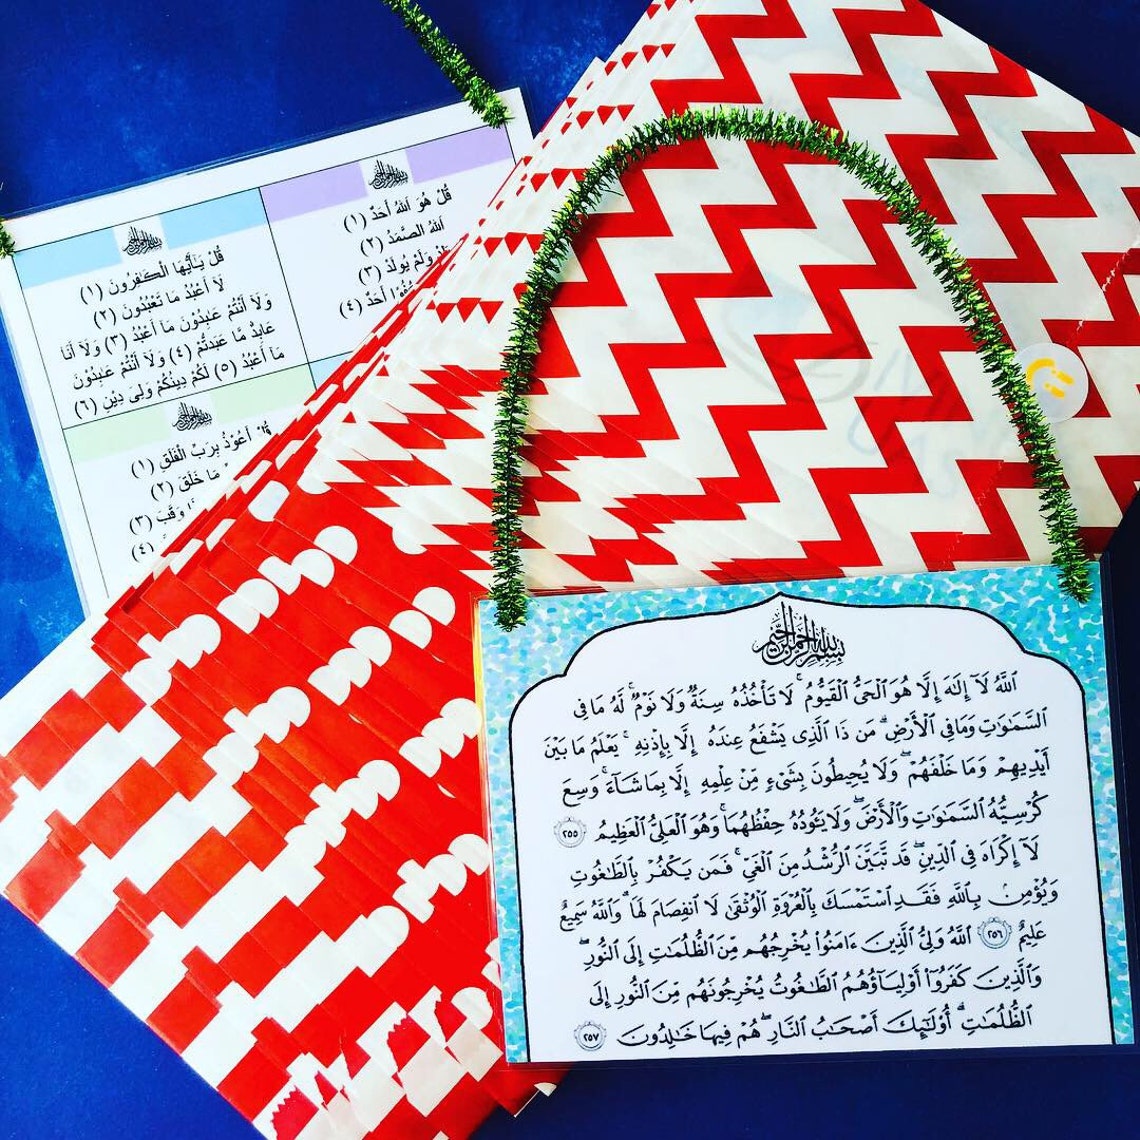 ﷽
قُلْ هُوَ اللهُ أَحَدٌ (١)
اللهُ الصَّمَدُ (٢)
وَلَمْ يُولَدْ (٣)
أَحَدٌ (٤)
﷽
قُلْ يَـٰٓأَيُّهَا الْكَـٰفِرُونَ (١)
لَآ أَعْبُدُ مَا تَعْبُدُونَ (٢)
وَلَآ أَنْتُمْ عَـٰبِدُوْنَ مَآ أَعْبُدُ (٣) وَلَآ أَنَا
عَابِدٌ مَّا عَبَدتُّمْ (٤) وَلَآ أَنْتُمْ عَـٰبِدُوْنَ
مَآ أَعْبُدُ (٥) لَكُمْ دِينُكُمْ وَلِىَ دِيْنِ (٦)
﷽
قُلْ أَعُوْذُ بِرَبِّ الْفَلَقِ (١)
مَا خَلَقَ (٢)
وَقَبَ (٣)
(٤)
بِسْمِ اللهِ الرَّحْمٰنِ الرَّحِيْمِ
ٱللَّهُ لَآ إِلَـٰهَ إِلَّا هُوَ ٱلْحَىُّ ٱلْقَيُّومُ ۚ لَا تَأْخُذُهُۥ سِنَةٌ وَلَا نَوْمٌ ۚ لَّهُۥ مَا فِى
ٱلسَّمَـٰوَٰتِ وَمَا فِى ٱلْأَرْضِ ۗ مَن ذَا ٱلَّذِى يَشْفَعُ عِندَهُۥٓ إِلَّا بِإِذْنِهِۦ ۚ يَعْلَمُ مَا بَيْنَ
أَيْدِيهِمْ وَمَا خَلْفَهُمْ ۖ وَلَا يُحِيطُونَ بِشَىْءٍ مِّنْ عِلْمِهِۦٓ إِلَّا بِمَا شَآءَ ۚ وَسِعَ
كُرْسِيُّهُ ٱلسَّمَـٰوَٰتِ وَٱلْأَرْضَ ۖ وَلَا يَـُٔودُهُۥ حِفْظُهُمَا ۚ وَهُوَ ٱلْعَلِىُّ ٱلْعَظِيمُ ٢٥٥
لَآ إِكْرَاهَ فِى ٱلدِّينِ ۖ قَد تَّبَيَّنَ ٱلرُّشْدُ مِنَ ٱلْغَىِّ ۚ فَمَن يَكْفُرْ بِٱلطَّـٰغُوتِ
وَيُؤْمِنۢ بِٱللَّهِ فَقَدِ ٱسْتَمْسَكَ بِٱلْعُرْوَةِ ٱلْوُثْقَىٰ لَا ٱنفِصَامَ لَهَا ۗ وَٱللَّهُ سَمِيعٌ
عَلِيمٌ ٢٥٦ ٱللَّهُ وَلِىُّ ٱلَّذِينَ ءَامَنُوا۟ يُخْرِجُهُم مِّنَ ٱلظُّلُمَـٰتِ إِلَى ٱلنُّورِ ۖ
وَٱلَّذِينَ كَفَرُوٓا۟ أَوْلِيَآؤُهُمُ ٱلطَّـٰغُوتُ يُخْرِجُونَهُم مِّنَ ٱلنُّورِ إِلَى
ٱلظُّلُمَـٰتِ ۗ أُو۟لَـٰٓئِكَ أَصْحَـٰبُ ٱلنَّارِ ۖ هُمْ فِيهَا خَـٰلِدُونَ ٢٥٧